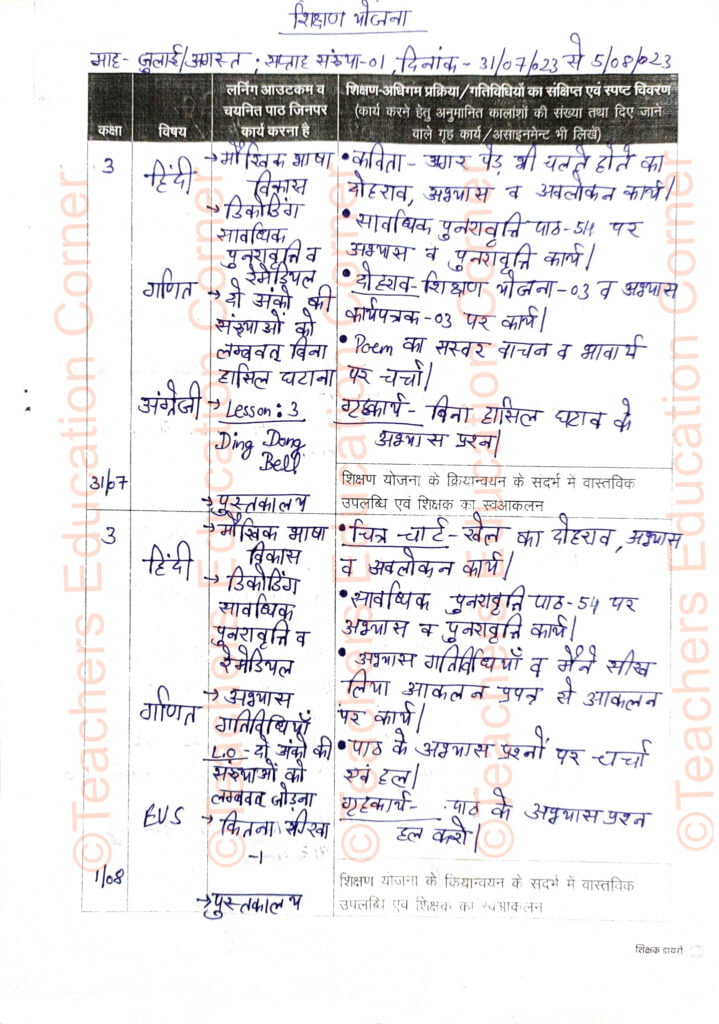 शिक्षण योजना
माह- जुलाई/अगस्त ; सप्ताह संख्या-01, दिनांक- 31/07/023 से 5/08/023
कक्षा
विषय
लर्निंग आउटकम व
चयनित पाठ जिनपर
कार्य करना है
शिक्षण-अधिगम प्रक्रिया/गतिविधियों का संक्षिप्त एवं स्पष्ट विवरण
(कार्य करने हेतु अनुमानित कालांशों की संख्या तथा दिए जाने
वाले गृह कार्य/असाइनमेंट भी लिखें)
3
हिंदी
→ मौखिक भाषा
विकास
→ डिकोडिंग
सावधिक
पुनरावृत्ति व
रेमेडियल
• कविता- अगर पेड़ भी चलते होते का
दोहराव, अभ्यास व अवलोकन कार्य।
• सावधिक पुनरावृत्ति पाठ-54 पर
अभ्यास व पुनरावृत्ति कार्य।
गणित
→ दो अंको की
संख्याओं को
लम्बवत् बिना
हासिल घटाना
• दोहराव- शिक्षण योजना-03 व अभ्यास
कार्यपत्रक-03 पर कार्य।
• Poem का सस्वर वाचन व भावार्थ
पर चर्चा।
अंग्रेजी
→ Lesson: 3
Ding Dong
Bell
गृहकार्य- बिना हासिल घटाव के
अभ्यास प्रश्न।
31/07
→ पुस्तकालय
शिक्षण योजना के क्रियान्वयन के संदर्भ में वास्तविक
उपलब्धि एवं शिक्षक का स्वआकलन
3
हिंदी
→ मौखिक भाषा
विकास
→ डिकोडिंग
सावधिक
पुनरावृत्ति व
रेमेडियल
• चित्र-चार्ट- खेल का दोहराव, अभ्यास
व अवलोकन कार्य।
• सावधिक पुनरावृत्ति पाठ-54 पर
अभ्यास व पुनरावृत्ति कार्य।
गणित
→ अभ्यास
गतिविधियाँ
L.O- दो अंको की
संख्याओं को
लम्बवत् जोड़ना
• अभ्यास गतिविधियाँ व मैंने सीख
लिया आकलन प्रपत्र से आकलन
पर कार्य।
• पाठ के अभ्यास प्रश्नों पर चर्चा
एवं हल।
EVS
→ कितना सीखा
-1
गृहकार्य- पाठ के अभ्यास प्रश्न
हल करो।
1/08
→ पुस्तकालय
शिक्षण योजना के क्रियान्वयन के संदर्भ में वास्तविक
उपलब्धि एवं शिक्षक का स्वआकलन
शिक्षक डायरी
©Teachers Education Corner
©Teachers Education Corner
©Teachers Education Corner
©Teachers Education Corner
©Teachers Education Corner